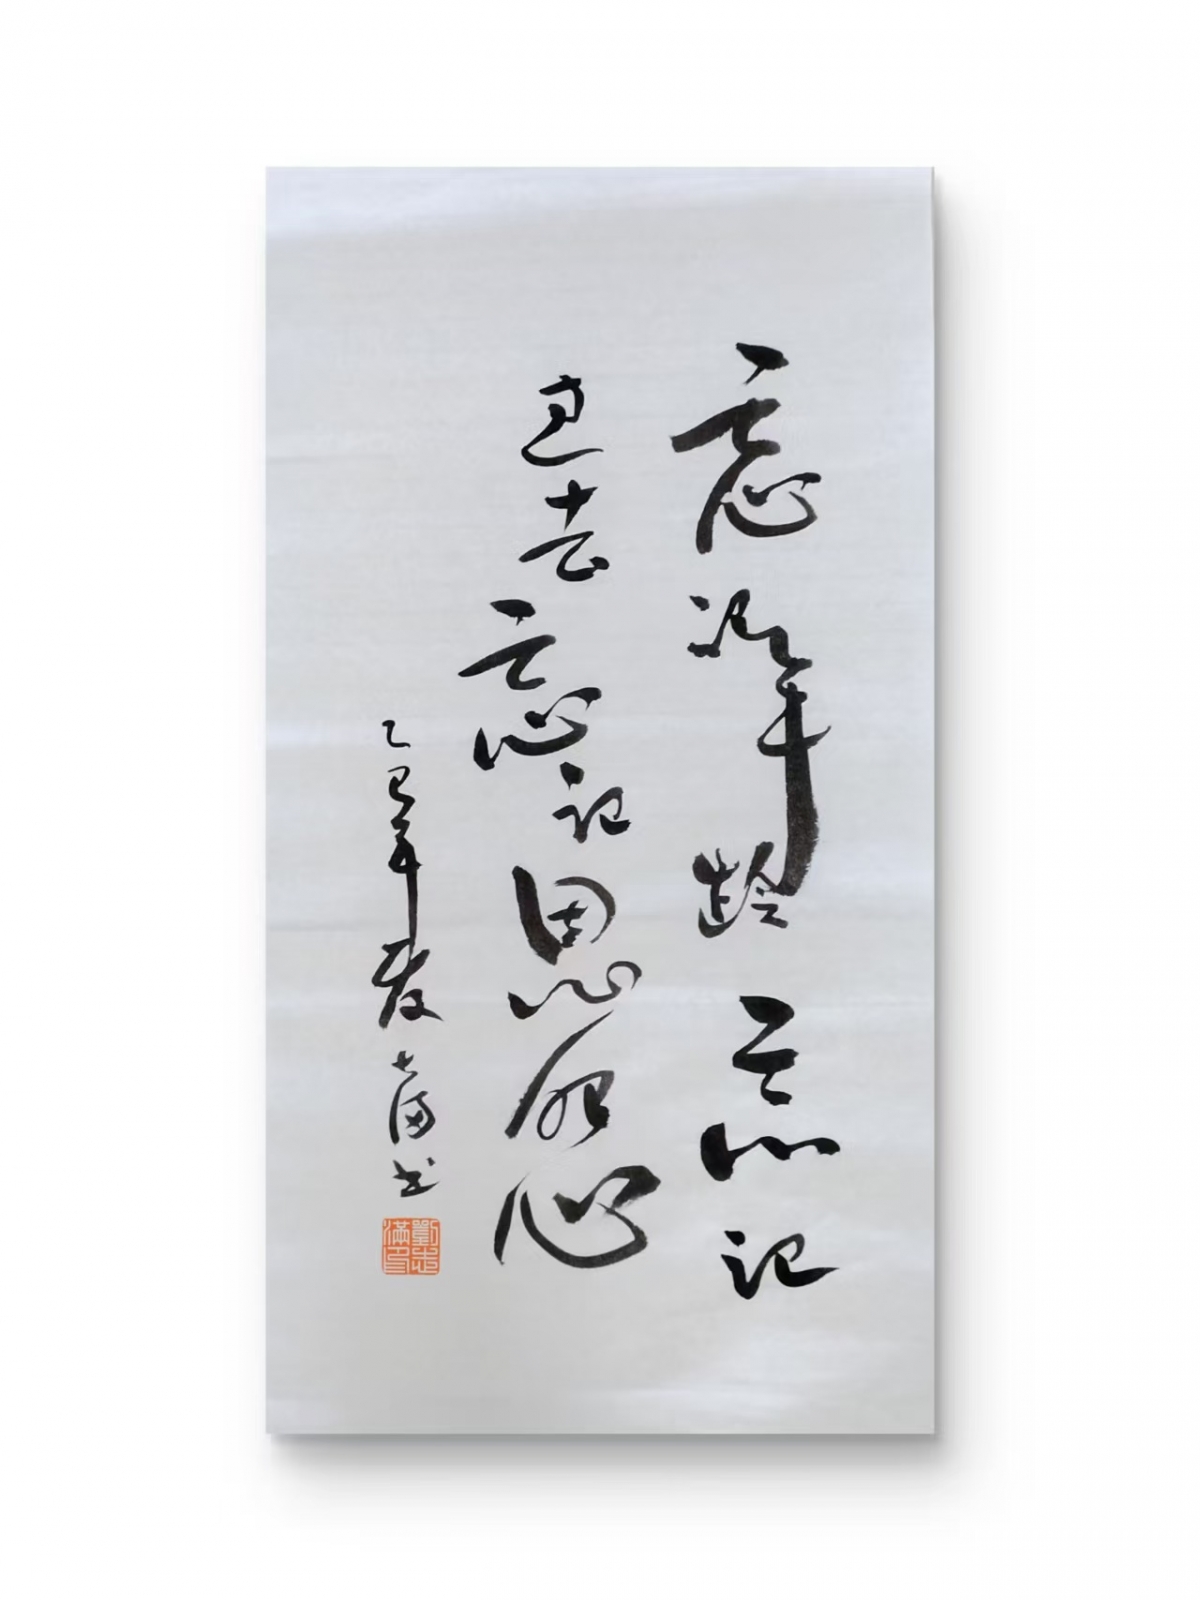 忘记年龄忘记
过去忘记恩怨
乙巳年夏志满书
劉志滿印